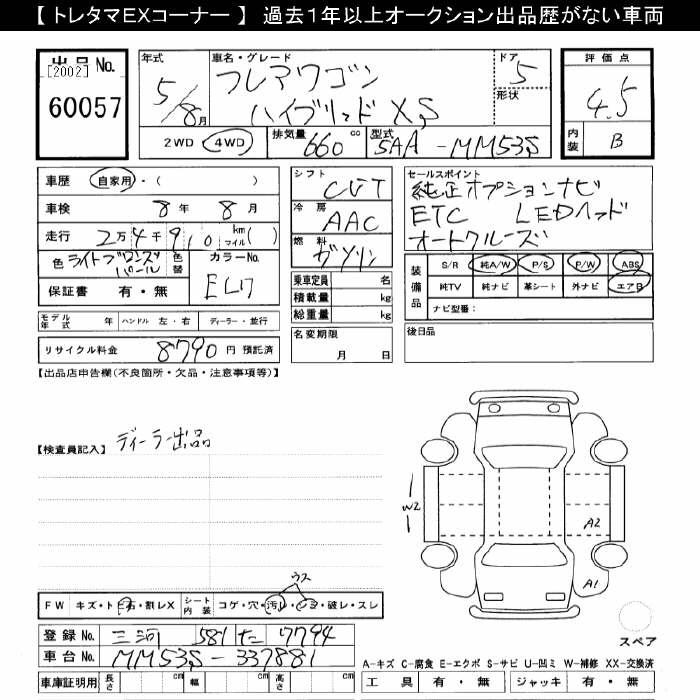 【 トレタマEXコーナー 】 過去1年以上オークション出品歴がない車両
出品 No.
[2002]
60057
年式
5/8月
車名・グレード
フレアワゴン
ハイブリッド XS
ドア
5
形状
評価点
4.5
内装 B
2WD 4WD
排気量 660 cc
型式 5AA-MM53S
車歴 自家用・( )
車検 8年 8月
走行 2万4千910 km マイル( )
色 ライトブロンズパール
色替
カラーNo.
保証書 有・無
シフト CVT
冷房 AAC
燃料 ガソリン
乗車定員 名
積載量 kg
総重量 kg
セールスポイント
純正オプションナビ
ETC LEDヘッド
オートクルーズ
装備品
S/R 純A/W P/S P/W ABS
純TV 純ナビ 革シート 外ナビ エアB
ナビ型番：
モデル年式 年 ハンドル 左・右 ディーラー・並行
リサイクル料金 8790 円 預託済
名変期限
月 日
後日品
【出品店申告欄(不良箇所・欠品・注意事項等)】
【検査員記入】 ディーラー出品
W2
A2
A1
ウス
FW キズ・トビ石・割レX
シート内装 コゲ・穴・汚レ・シミ・破レ・スレ
スペア
登録 No. 三河 581 た 7794
車台 No. MM53S-337881
車庫証明用 長さ cm 幅 cm 高さ cm
A-キズ C-腐食 E-エクボ S-サビ U-凹ミ W-補修 XX-交換済
工具 有・無 ジャッキ 有・無